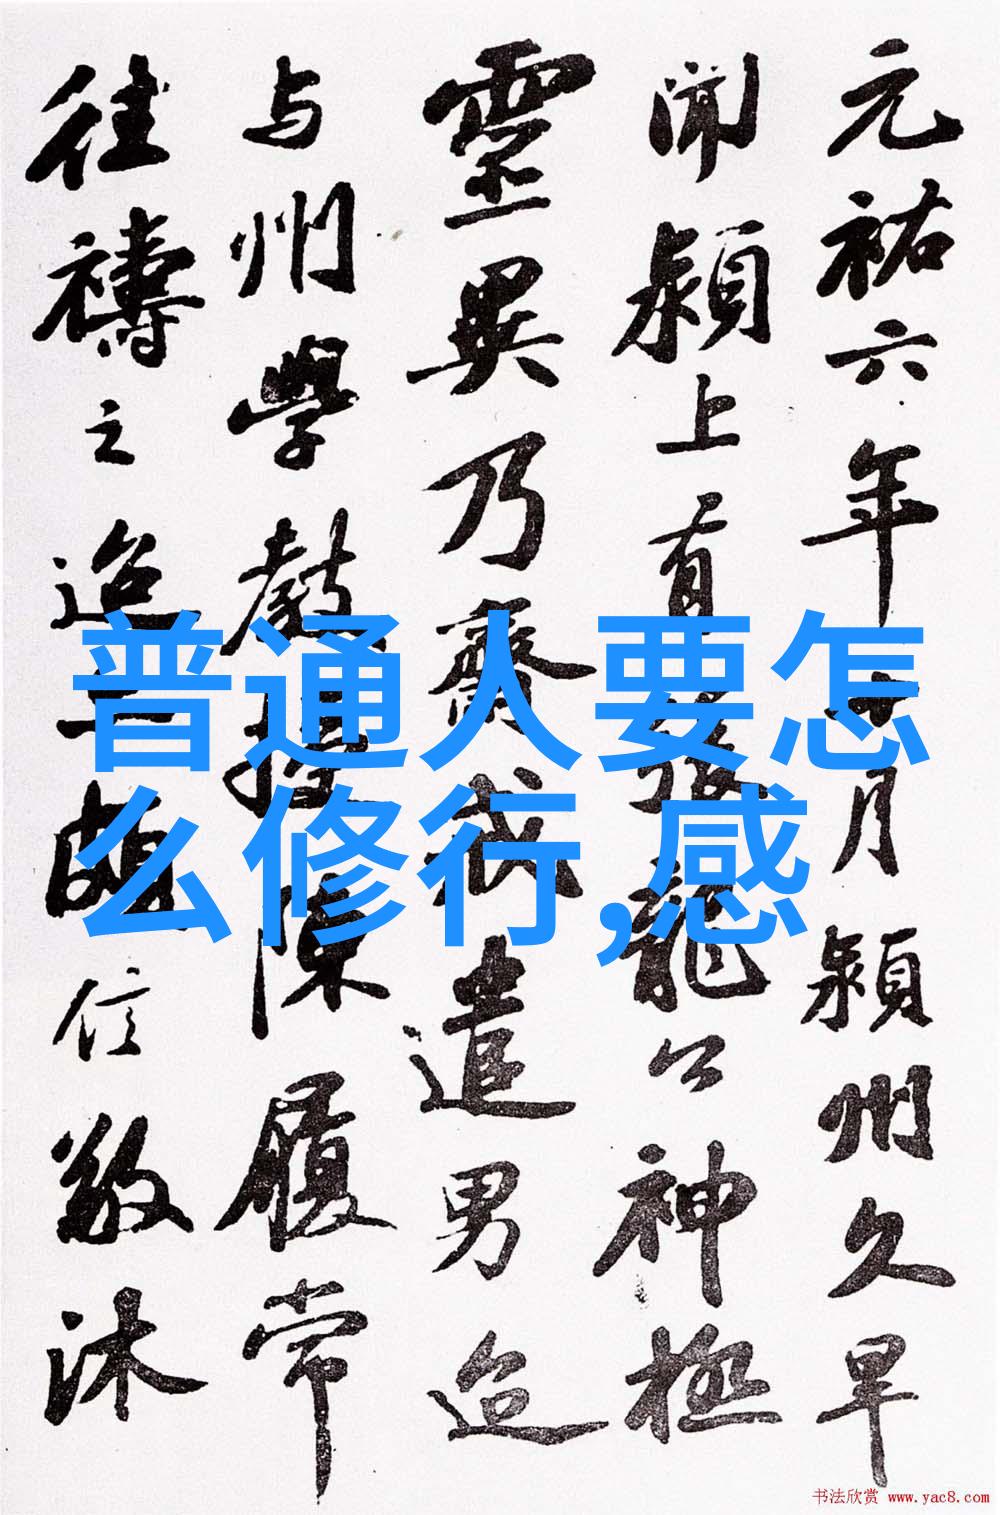 元祐六年十月潁州久旱
聞潁上有張龍公神極
靈異乃齋戒遣男迨
与州學教授陳履常
往禱之迨亦頗信敬沐
普通人要怎
么修行,感
书法欣赏 www.yac8.com